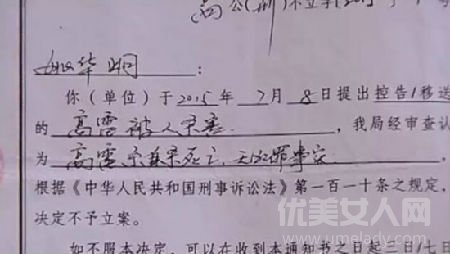 公(刑)不立字
华明：
你（单位）于2015年7月8日提出控告/移送
的高雷被人杀害，我局经审查认
为高雷系自杀死亡，无犯罪事实，
根据《中华人民共和国刑事诉讼法》第一百一十条之规定，
决定不予立案。
如不服本决定，可以在收到本通知书之日起三日/七日
优美女人网
www.umelady.com